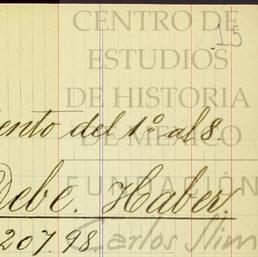 CENTRO DE
15
ESTUDIOS
DE HISTORIA
ento del 1º al 8.
DE MÉXICO
FUNDACIÓN
Debe. Haber.
207.98
Carlos Slim